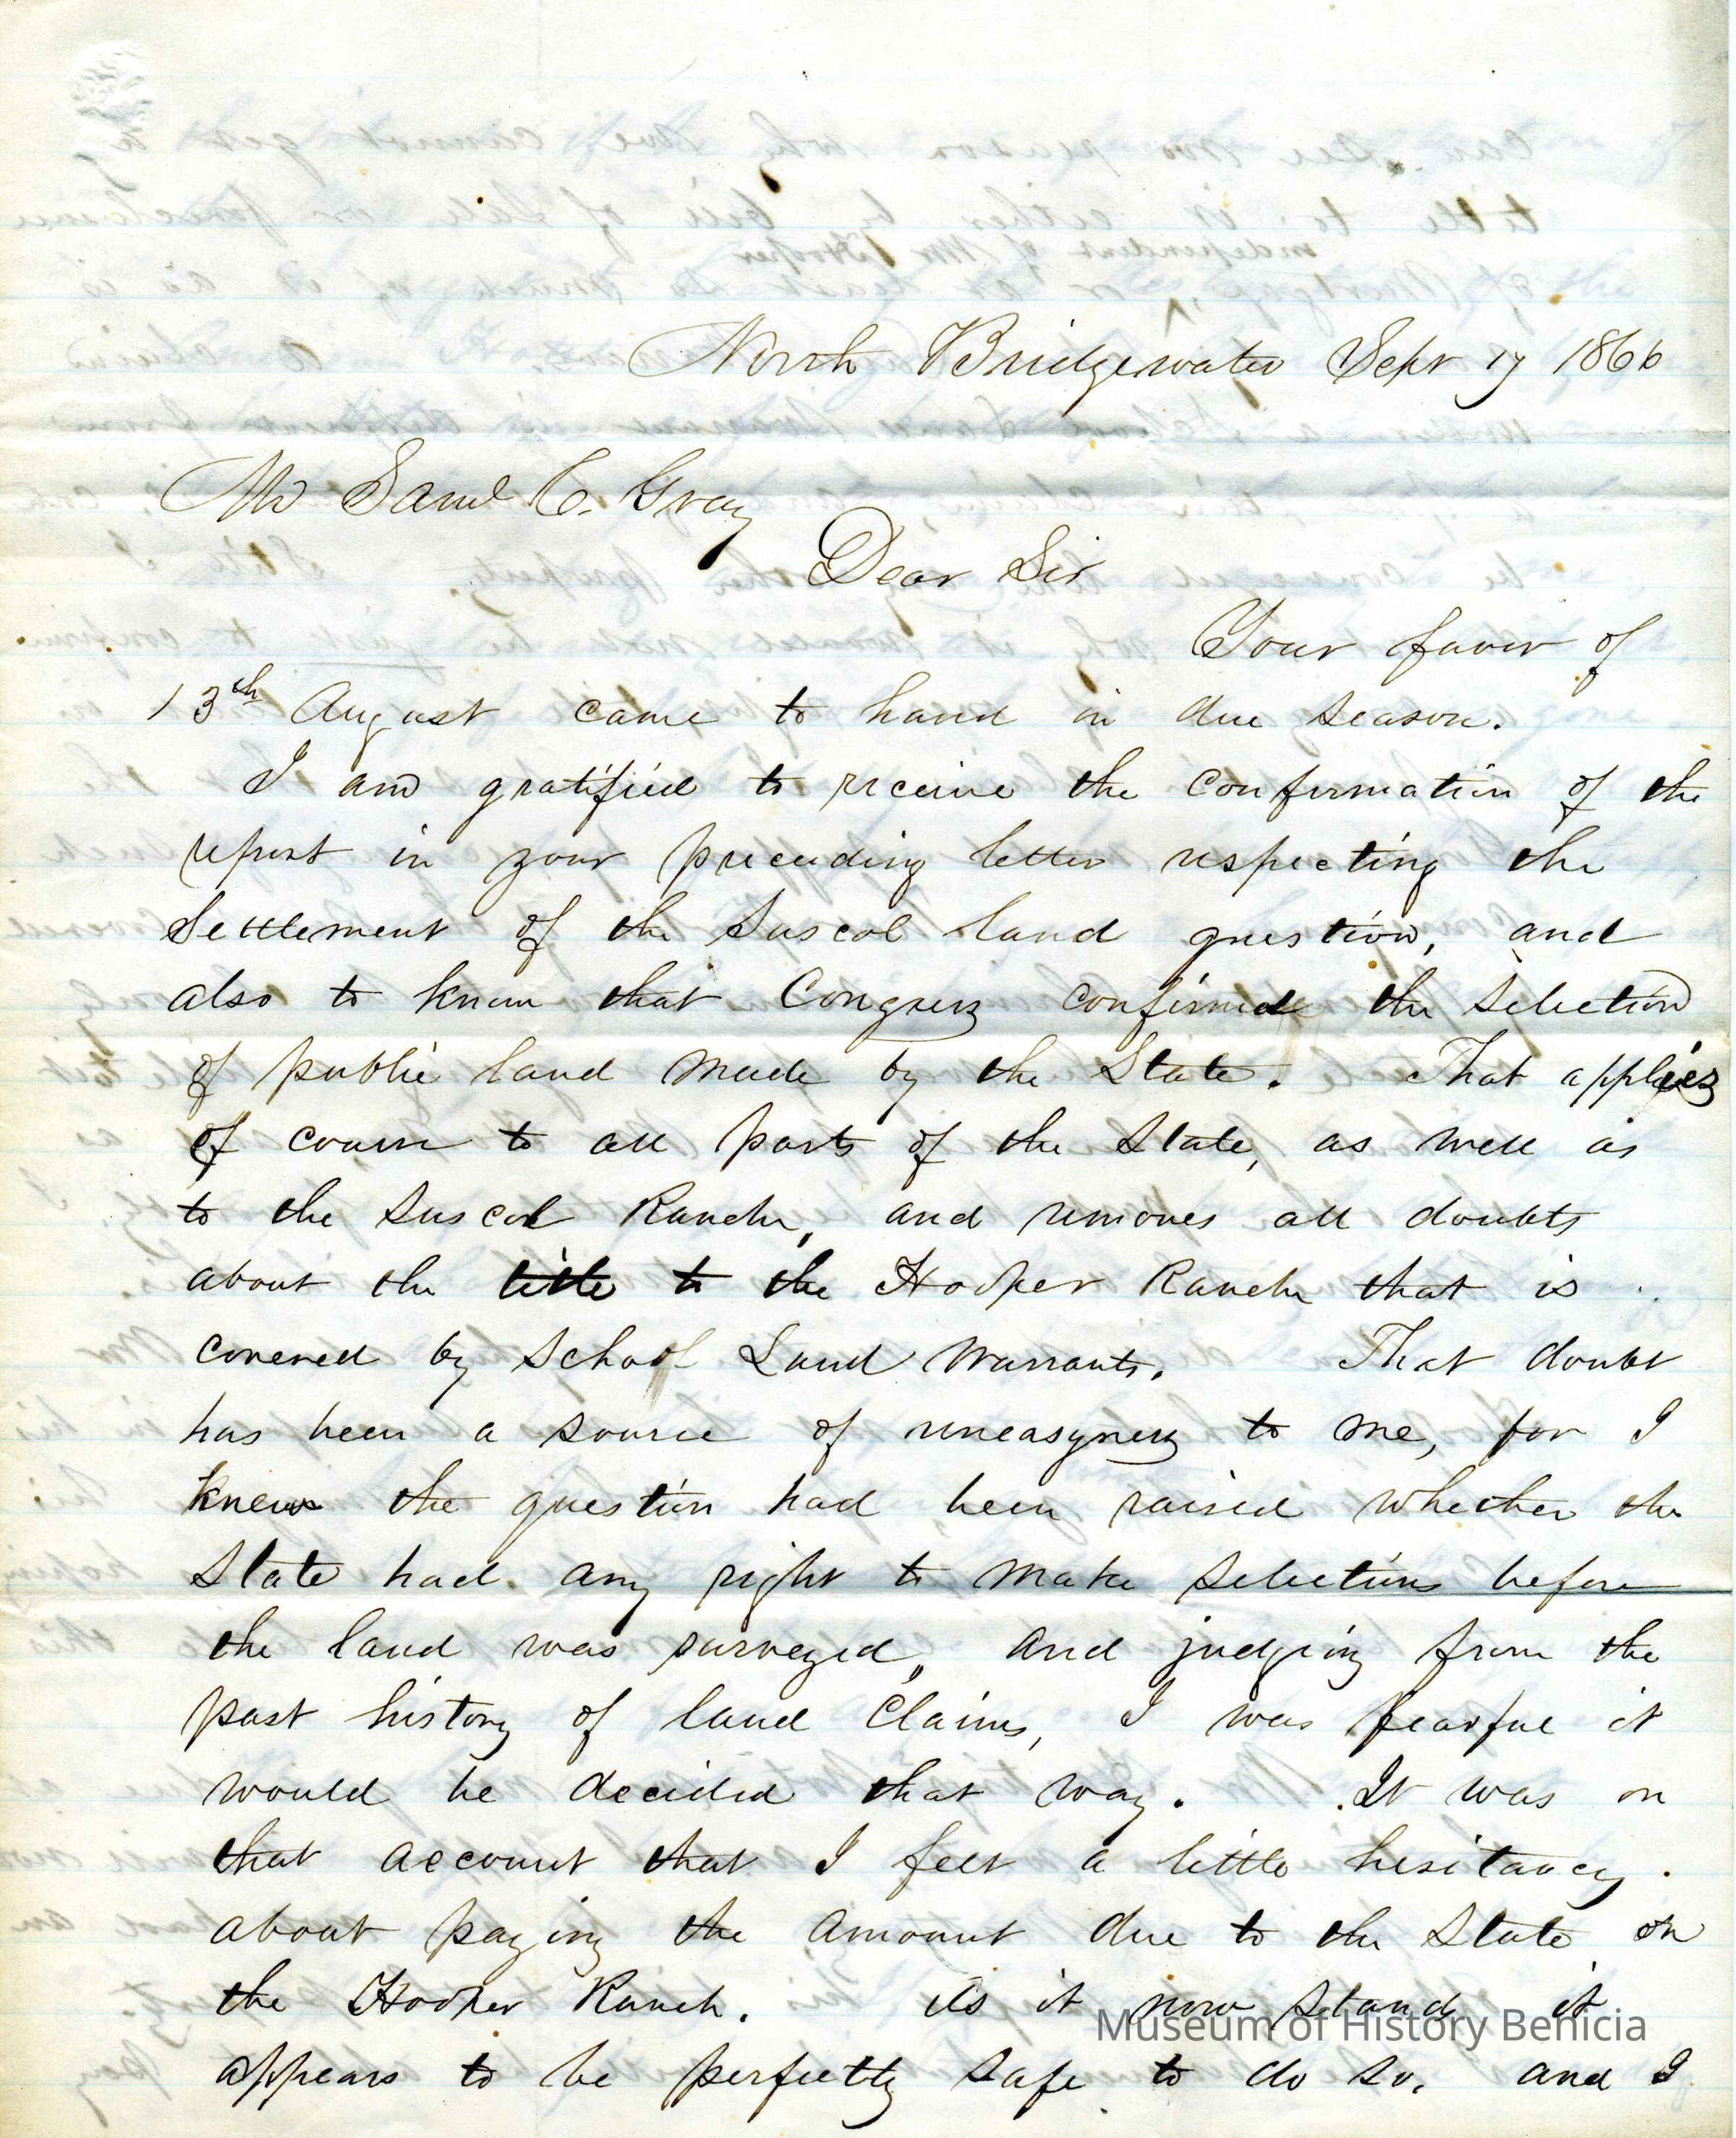 North Bridgewater Sept 17 1866
Mr Saml C. Gray
Dear Sir
Your favor of
13th August came to hand in due season.
I am gratified to receive the confirmation of the
report in your preceeding letter respecting the
settlement of the Suscol land question, and
also to know that Congress confirmed the selection
of public land made by the State. That applies
of course to all parts of the State, as well as
to the Suscol Ranch, and removes all doubts
about the title to the Hooper Ranch that is
covered by School Land Warrants. That doubt
has been a source of uneasyness to me, for I
knew the question had been raised whether the
State had any right to make selections before
the land was surveyed, and judging from the
past history of land claims, I was fearful it
would be decided that way. It was on
that account that I felt a little hesitancy
about paying the amount due to the State on
the Hooper Ranch. As it now stands it
appears to be perfectly safe to do so, and I
Museum of History Benicia